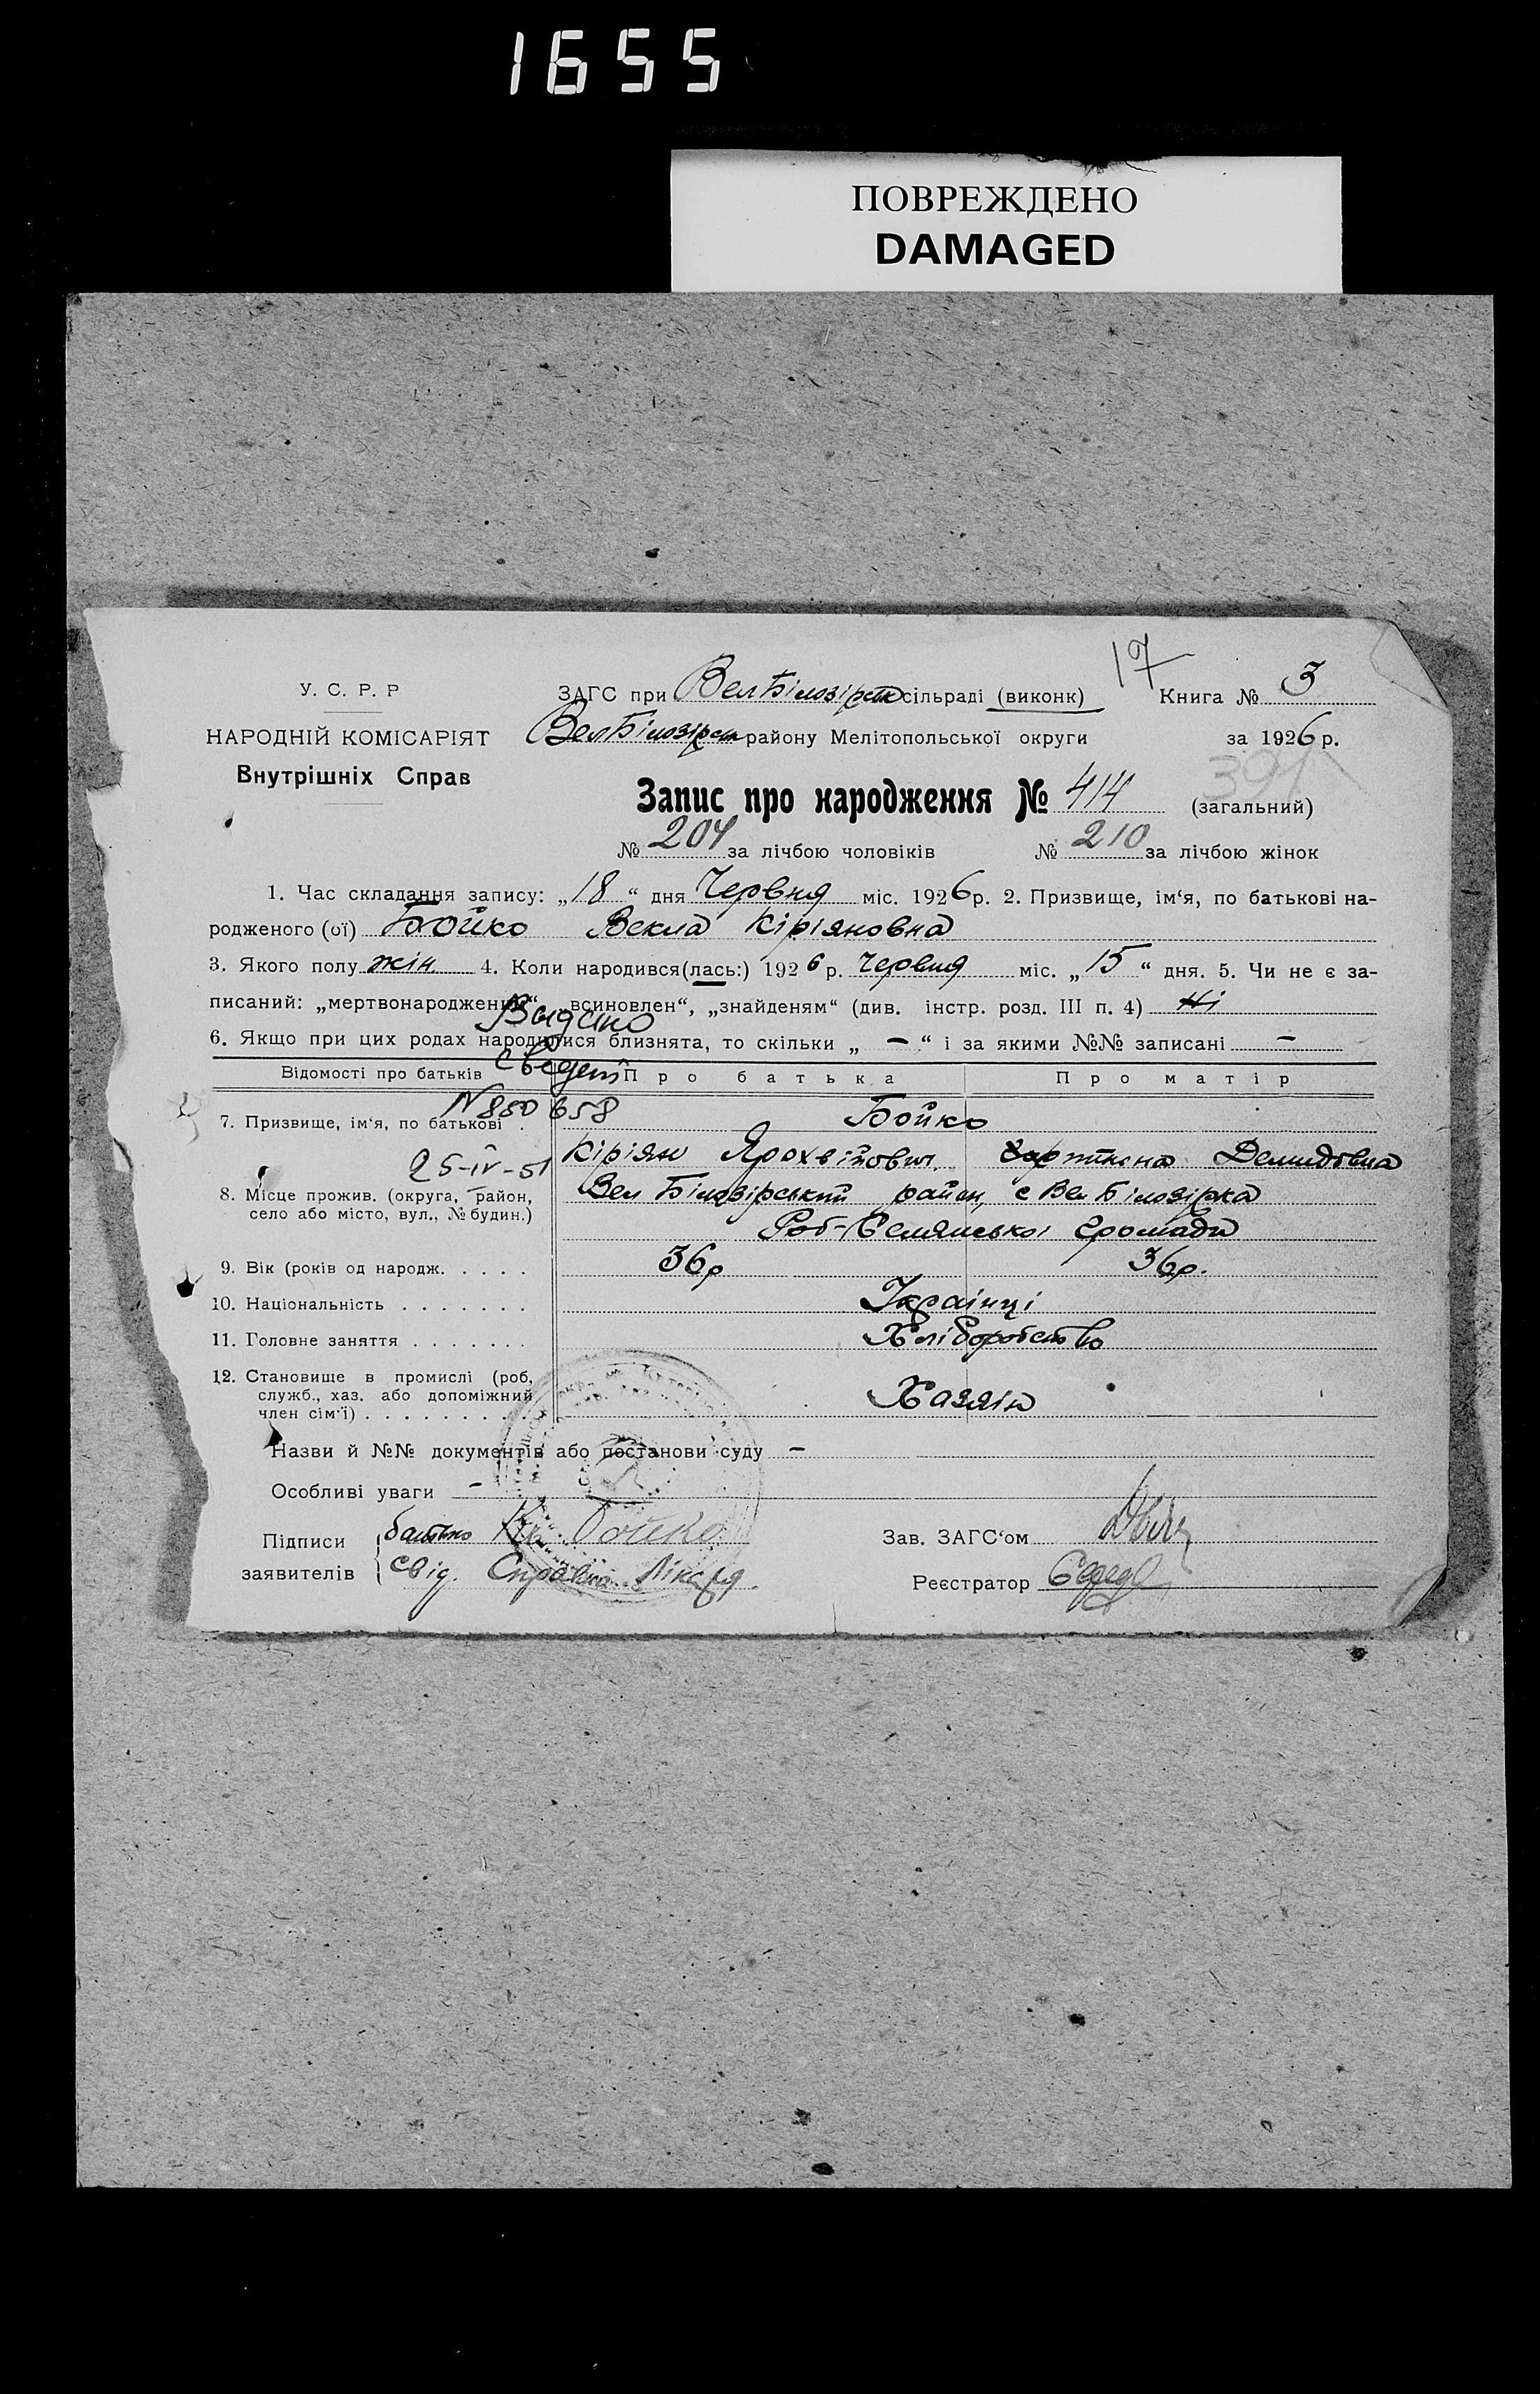 1655
ПОВРЕЖДЕНО
DAMAGED
17
У. С. Р. Р
НАРОДНІЙ КОМІСАРІЯТ
Внутрішніх Справ
ЗАГС при Вел Білозірск сільраді (виконк) Книга № 3
Вел Білозірськ району Мелітопольської округи за 1926 р.
391
Запис про народження № 414 (загальний)
№ 204 за лічбою чоловіків № 210 за лічбою жінок
1. Час складання запису: „18“ дня Червня міс. 1926 р. 2. Призвище, ім‘я, по батькові на-
родженого (ої) Бойко Векла Кіріяновна
3. Якого полу жін 4. Коли народився(лась:) 1926 р. Червня міс. „15“ дня. 5. Чи не є за-
писаний: „мертвонародженим“, „всиновлен“, „знайденям“ (див. інстр. розд. III п. 4) Ні
6. Якщо при цих родах народилися близнята, то скільки „ — “ і за якими №№ записані —
Выдано
Сведет
N 880658
25-IV-51
Відомості про батьків Про батька Про матір
7. Призвище, ім‘я, по батькові . Бойко
Кіріян Демидовна
8. Місце прожив. (округа, район, село або місто, вул., № будин.) Вел Білозірський район, с Вел Білозірка
громади
9. Вік (років од народж. . . . . 36р 36р.
10. Національність . . . . . . . Українці
11. Головне заняття . . . . . . . Хліборобство
12. Становище в промислі (роб, служб., хаз. або допоміжний член сім‘ї) . . . . . . . . . Хазяін
Назви й №№ документів або постанови суду —
Особливі уваги —
Підписи заявителів { батько Бойко
Свід. Справка Лікаря
Зав. ЗАГС‘ом
Реєстратор